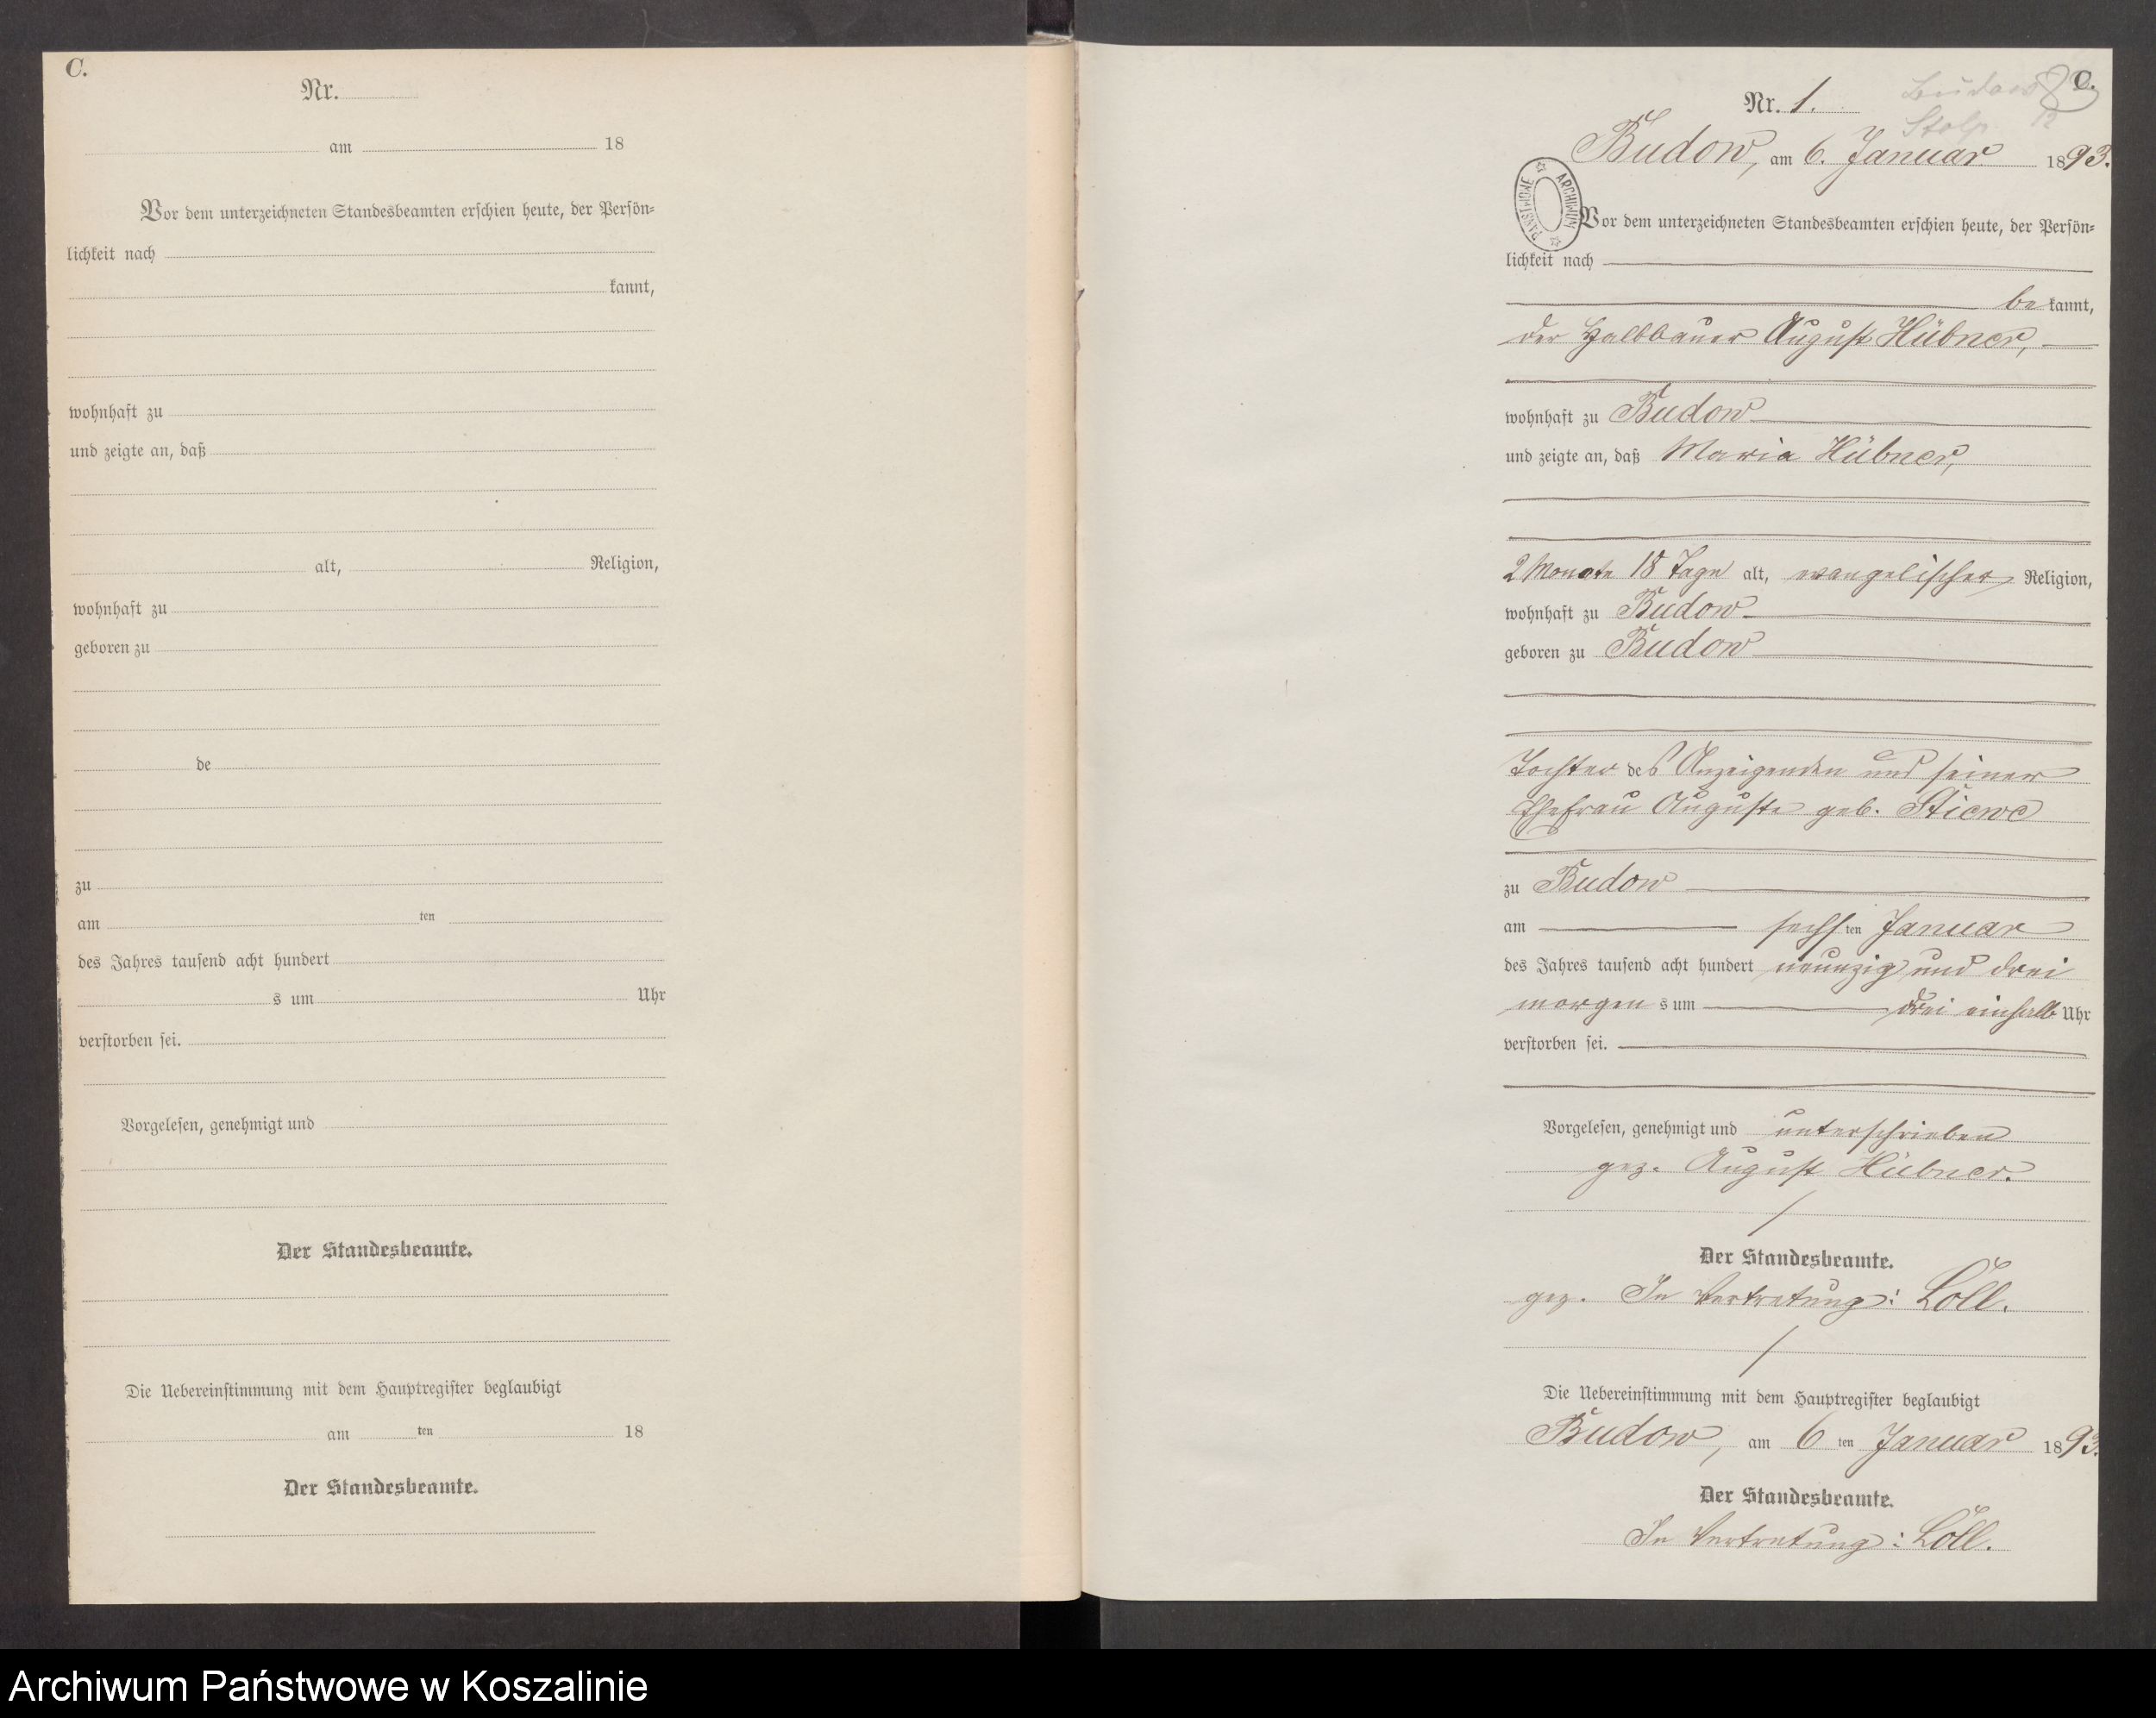 C.
Nr.
am 18
Vor dem unterzeichneten Standesbeamten erschien heute, der Persön=
lichkeit nach
kannt,
wohnhaft zu
und zeigte an, daß
alt, Religion,
wohnhaft zu
geboren zu
de
zu
am ten
des Jahres tausend acht hundert
s um Uhr
verstorben sei.
Vorgelesen, genehmigt und
Der Standesbeamte.
Die Uebereinstimmung mit dem Hauptregister beglaubigt
am ten 18
Der Standesbeamte.
C.
Budow
Stolp
Nr. 1.
Budow, am 6. Januar 1893.
ARCHIWUM PAŃSTWOWE
Vor dem unterzeichneten Standesbeamten erschien heute, der Persön=
lichkeit nach
bekannt,
der Halbbauer August Hübner,
wohnhaft zu Budow
und zeigte an, daß Maria Hübner,
2 Monate 18 Tage alt, evangelischer Religion,
wohnhaft zu Budow
geboren zu Budow
Tochter des Anzeigenden und seiner
Ehefrau Auguste geb. Stiewe
zu Budow
am sechsten Januar
des Jahres tausend acht hundert neunzig und drei
morgens um drei einhalb Uhr
verstorben sei.
Vorgelesen, genehmigt und unterschrieben
gez. August Hübner.
Der Standesbeamte.
gez. In Vertretung: Löll.
Die Uebereinstimmung mit dem Hauptregister beglaubigt
Budow, am 6 ten Januar 1893.
Der Standesbeamte.
In Vertretung: Löll.
Archiwum Państwowe w Koszalinie